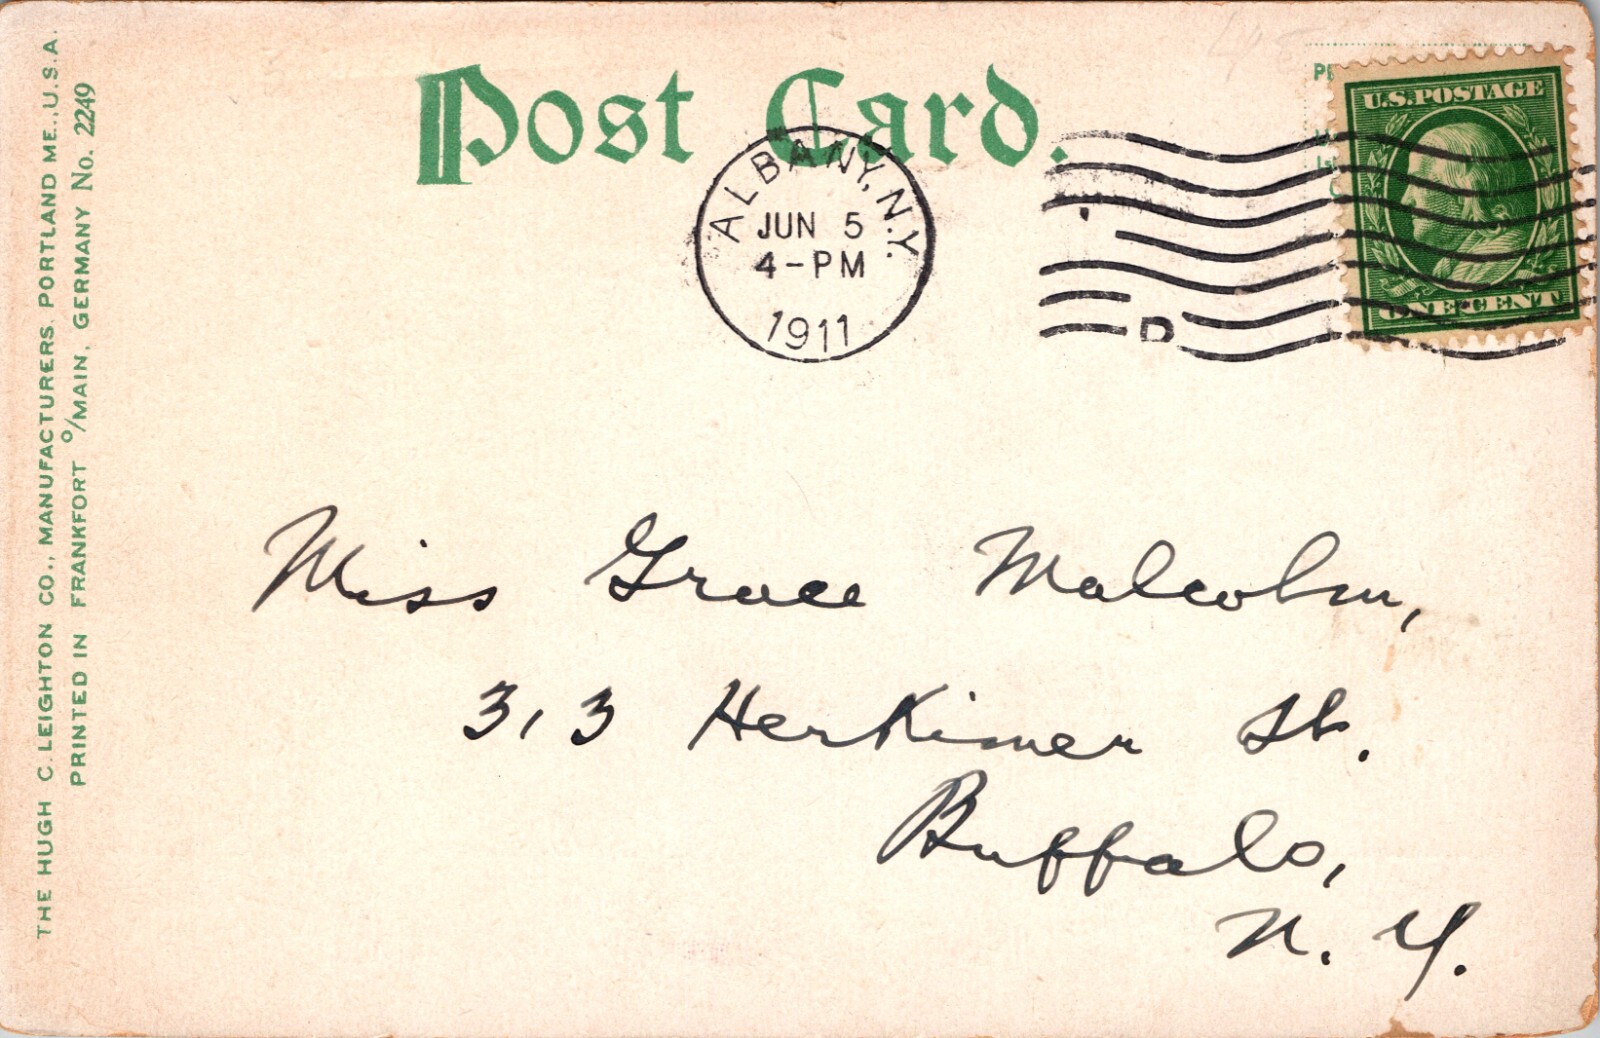 Post Card.
THE HUGH C. LEIGHTON CO., MANUFACTURERS, PORTLAND ME., U.S.A.
PRINTED IN FRANKFORT O/MAIN, GERMANY No. 2249
ALBANY, N.Y.
JUN 5
4-PM
1911
D
U.S. POSTAGE
ONE CENT
Miss Grace Malcolm,
313 Herkimer St.
Buffalo,
N. Y.